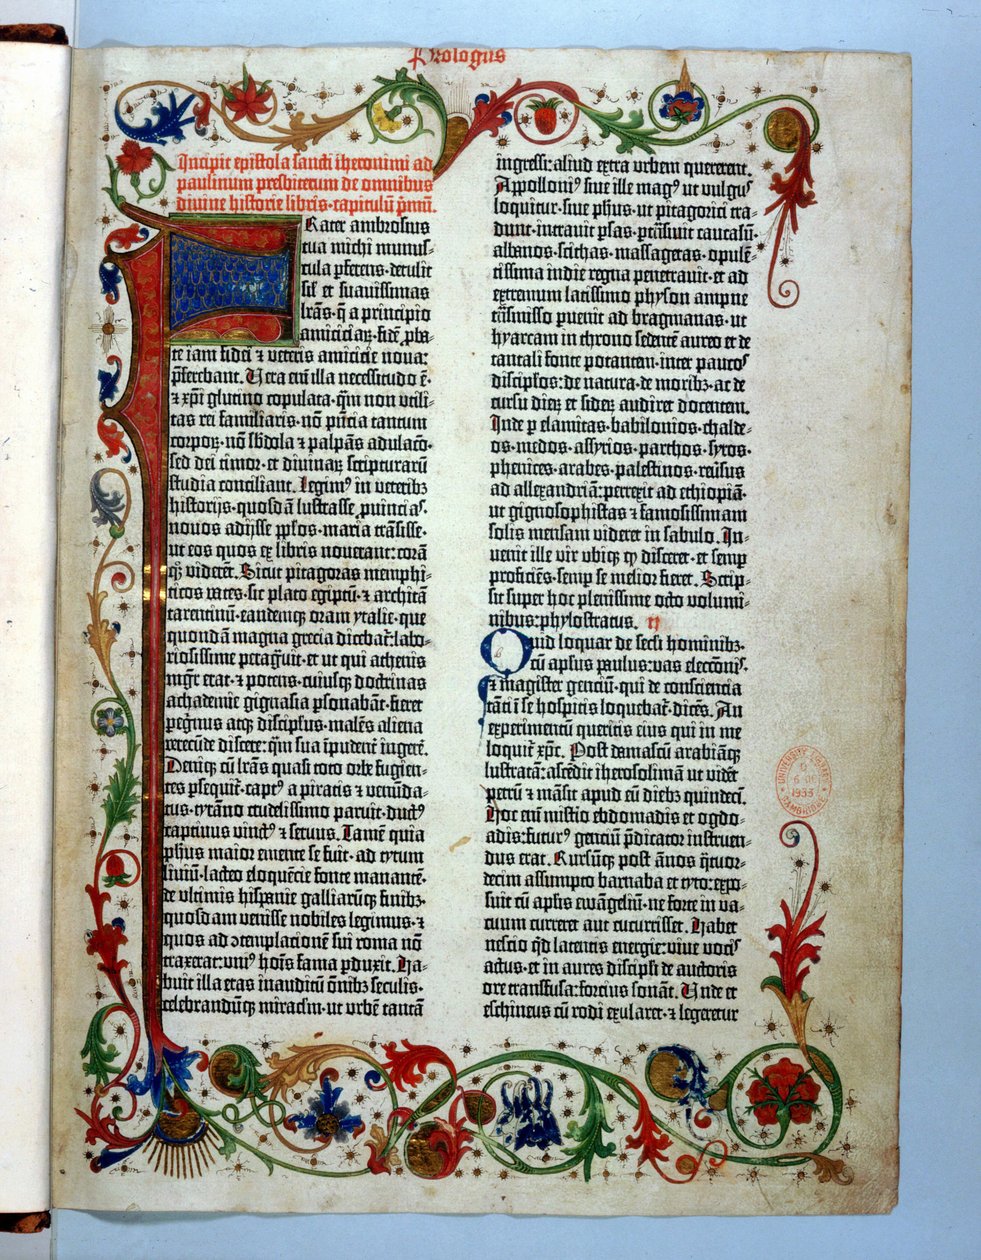 Prologus
Incipit epistola sancti iheronimi ad
paulinum presbiterum de omnibus
divine historie libris·capitulū p̄mū.
Frater ambrosius
tua michi munus-
cula p̄ferens·detulit
sil̄ et suavissimas
lr̄as·q̄ a principio
amiciciaꝝ·fidē ꝓba-
te iam fidei ⁊ veteris amicicie nova:
p̄ferebant. Vera eni illa necessitudo ē·
⁊ xp̄i glutino copulata·qm̄ non utili-
tas rei familiaris·nō pn̄cia tantum
corpoꝝ·nō sb̓dola ⁊ palpās adulacō·
sed dei timor·et divinaꝝ scripturarū
studia conciliant. Legim⁹ in veterib⁊
historijs·quosdā lustrasse ꝓvincias·
novos adijsse pp̄los·maria trāsisse·
ut eos quos ex libris noverant: corā
q̇ꝫ viderēt. Sicut pitagoras memphi-
ticos vates·sic plato egiptū·⁊ architā
tarentinū·eandemqꝫ oram ytalie·que
quondā magna grecia dicebat̄: labo-
riosissime peragͣvit·et ut qui athenis
mgr̄ erat·⁊ potens·cuiusqꝫ doctrinas
achademie gignasia ꝑsonabāt·fieret
peg̊nus atqꝫ discipl̄us·malēs aliena
verecūde discere: qͣm sua ĩpudent̄ ingerē.
Deniqꝫ cū lr̄as quasi toto orbe fugien-
tes ꝑsequit̄·capt⁹ a piratis ⁊ venūda-
tus·tyrāno crudelissimo paruit·duct⁹
captivus vinct⁹ ⁊ servus. Tamē quia
ph̄us maior emente se fuit·ad tytum
liviū·lacteo eloquēcie fonte manantē·
de ultimis hispanie galliarūqꝫ finib⁊·
quosdam venisse nobiles legimus·⁊
quos ad ꝯtemplacionē sui roma nō
traxerat: uni⁹ hoīs fama ꝑduxit. Ha-
buit illa etas inauditū oīb⁊ seculis·
celebrandūqꝫ miraclm̄·ut urbē tantā
ingressi: aliud extra urbem quererent.
Appolloni⁹ sive ille mag⁹ ut vulgus
loquitur·sive ph̄us·ut pitagorici tra-
dunt·intravit ꝑsas·ptͣnsivit caucasū·
albanos·scithas·massagetas·opulē-
tissima indie regna penetravit·et ad
extremum latissimo physon ampne
tͣnsmisso ꝑvenit ad bragmanas·ut
hyarcam in throno sedentē aureo et de
tantali fonte potantem·inter paucos
discipl̄os: de natura·de morib⁊·ac de
cursu dieꝝ et sideꝝ audiret docentem.
Inde ꝑ elamitas·babilonios·chalde-
os·medos·assyrios·parthos·syros·
phenices·arabes·palestinos·reversus
ad allexandriā: perrexit ad ethiopiā·
ut gignosophistas ⁊ famosissimam
solis mensam videret in sabulo. In-
venit ille vir ubiqꝫ qd̓ disceret·et semꝑ
proficiēs·semꝑ se melior fieret. Scrip-
sit super hoc plenissime octo volumi-
nibus: phylostratus. II
Quid loquar de secl̓i hominib⁊·
cū apl̄us paulus: vas elecc̄oīs·
⁊ magister genciū·qui de consciencia
tāti ĩ se hospitis loquebat̄·dicēs. An
experimentū queritis eius qui in me
loquit̄ xp̄c. Post damascū arabiāqꝫ
lustratā: ascēdit iherosolimā ut videt̄
petrū ⁊ māsit apud eū dieb⁊ quindeci.
Hoc enī misterio ebdomadis et ogdo-
adis: futur⁹ genciū p̄dicator instruen-
dus erat. Rursūqꝫ post ānos q̄tuor-
decim assumpto barnaba et tyto: expo-
suit cū apl̄is ewāgeliū·ne forte in va-
cuum curreret aut cucurrisset. Habet
nescio qd̓ latentis energie: vive vocis
actus·et in aures discipl̓i de auctoris
ore transfusa: forcius sonat̄. Unde et
eschineus cū rodi exularet·⁊ legeretur
UNIVERSITY LIBRARY
1933
CAMBRIDGE